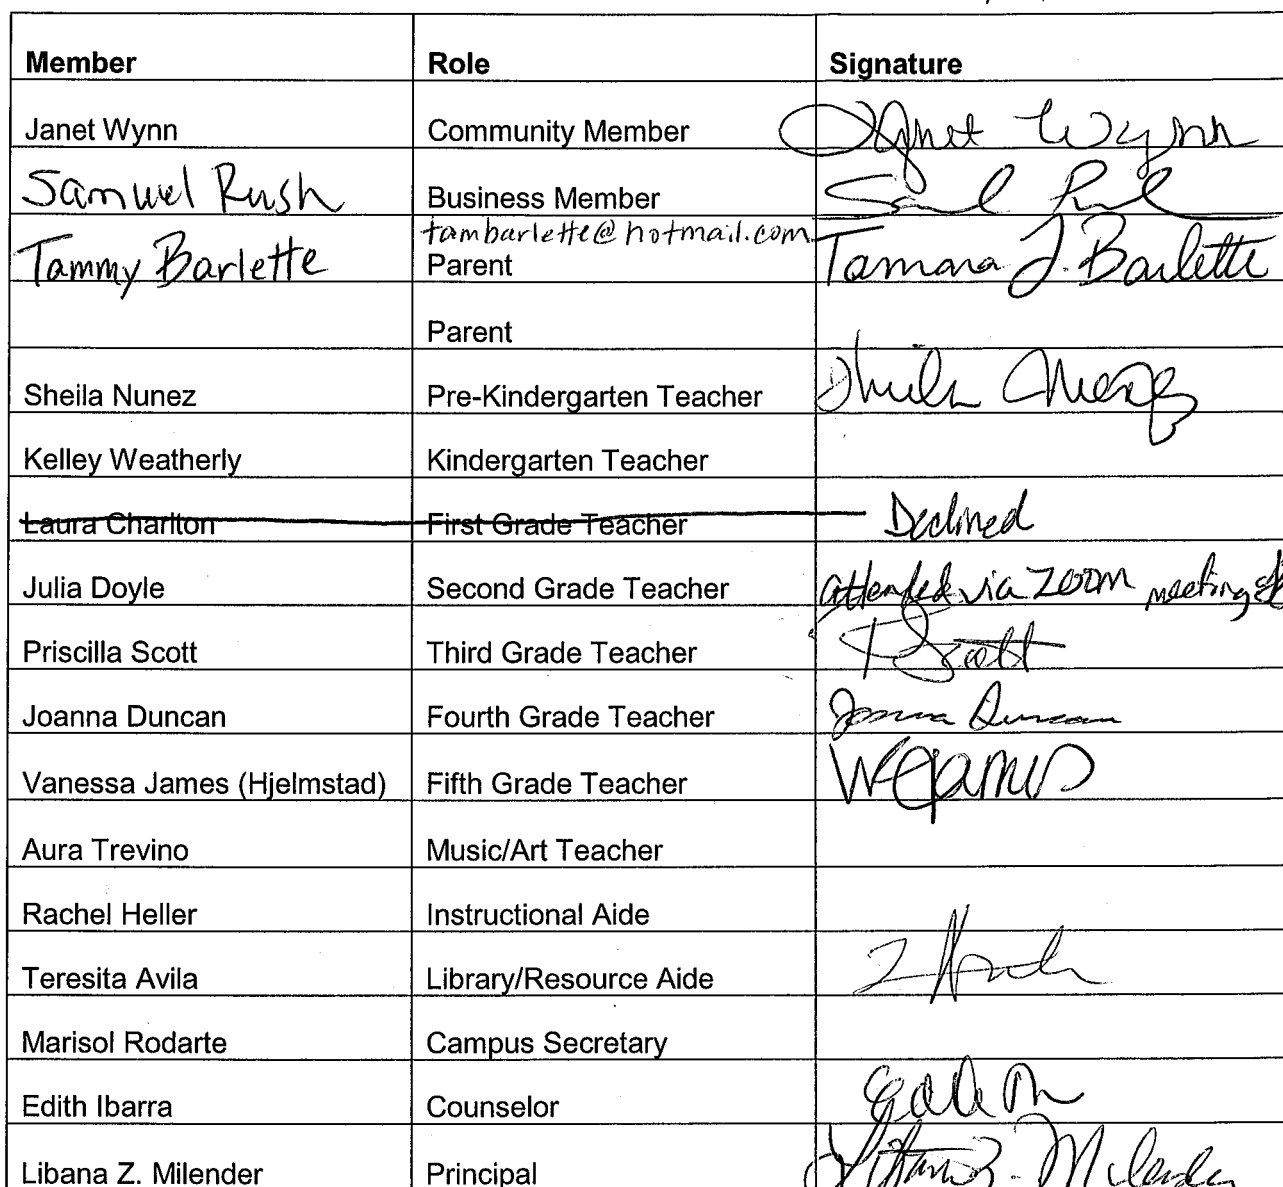 Member Role Signature
Janet Wynn Community Member Janet Wynn
Samuel Rush Business Member
tambarlette@hotmail.com
Tammy Barlette Parent Tamara J. Barlette
Parent
Sheila Nunez Pre-Kindergarten Teacher Sheila
Kelley Weatherly Kindergarten Teacher
Laura Charlton First Grade Teacher Declined
Julia Doyle Second Grade Teacher attended via zoom meeting
Priscilla Scott Third Grade Teacher PScott
Joanna Duncan Fourth Grade Teacher Joanna Duncan
Vanessa James (Hjelmstad) Fifth Grade Teacher
Aura Trevino Music/Art Teacher
Rachel Heller Instructional Aide
Teresita Avila Library/Resource Aide
Marisol Rodarte Campus Secretary
Edith Ibarra Counselor
Libana Z. Milender Principal Libana Z. Milender